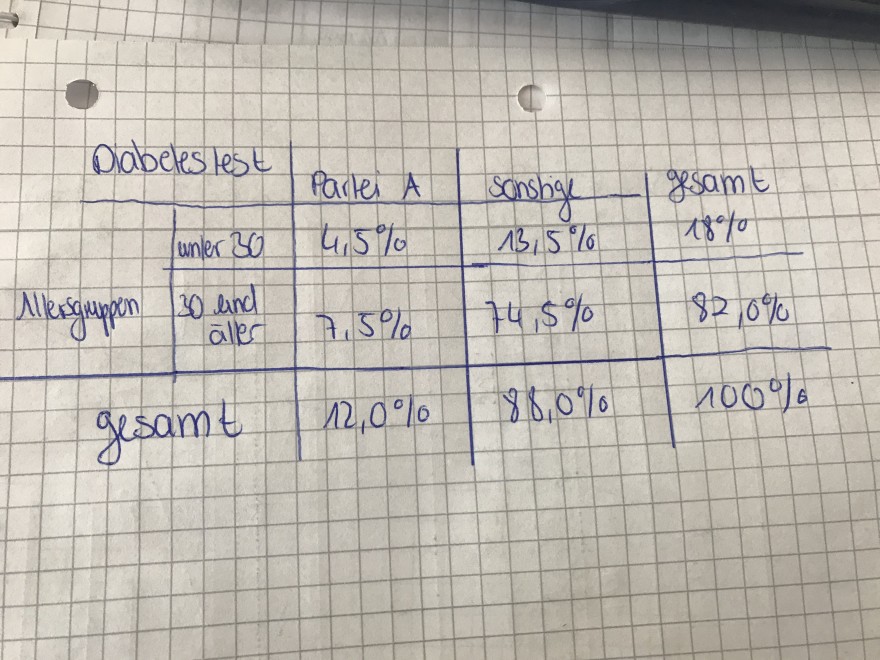 Diabetestest
Partei A sonstige gesamt
unter 30 4,5% 13,5% 18%
Altersgruppen 30 und älter 7,5% 74,5% 82,0%
gesamt 12,0% 88,0% 100%